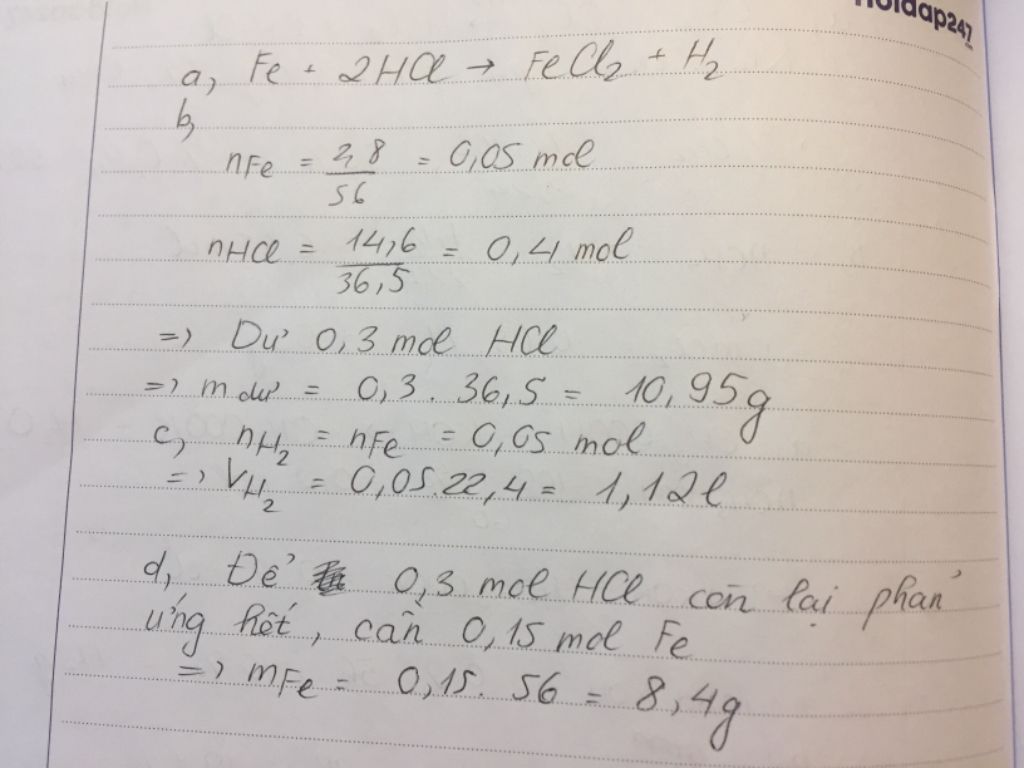 Hoidap247
a, Fe + 2HCl → FeCl₂ + H₂
b,
nFe = 2,8/56 = 0,05 mol
nHCl = 14,6/36,5 = 0,4 mol
=> Dư 0,3 mol HCl
=> m dư = 0,3 . 36,5 = 10,95g
c, nH₂ = nFe = 0,05 mol
=> VH₂ = 0,05.22,4 = 1,12l
d, Để 0,3 mol HCl còn lại phản
ứng hết, cần 0,15 mol Fe
=> mFe = 0,15. 56 = 8,4g